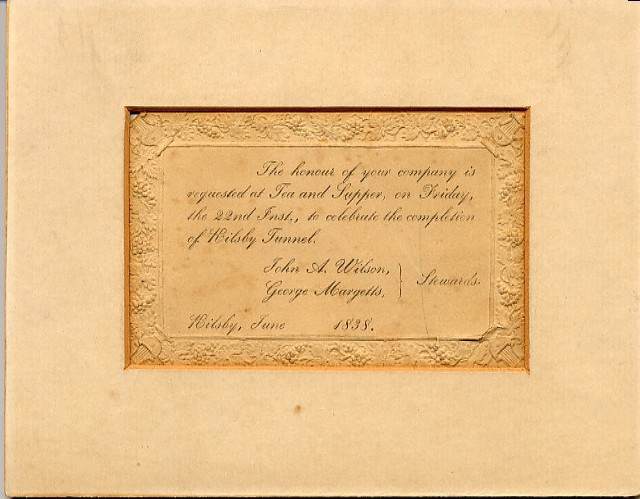 The honour of your company is
requested at Tea and Supper, on Friday,
the 22nd Inst., to celebrate the completion
of Kilsby Tunnel.
John A. Wilson,
George Margetts,
} Stewards.
Kilsby, June 1838.